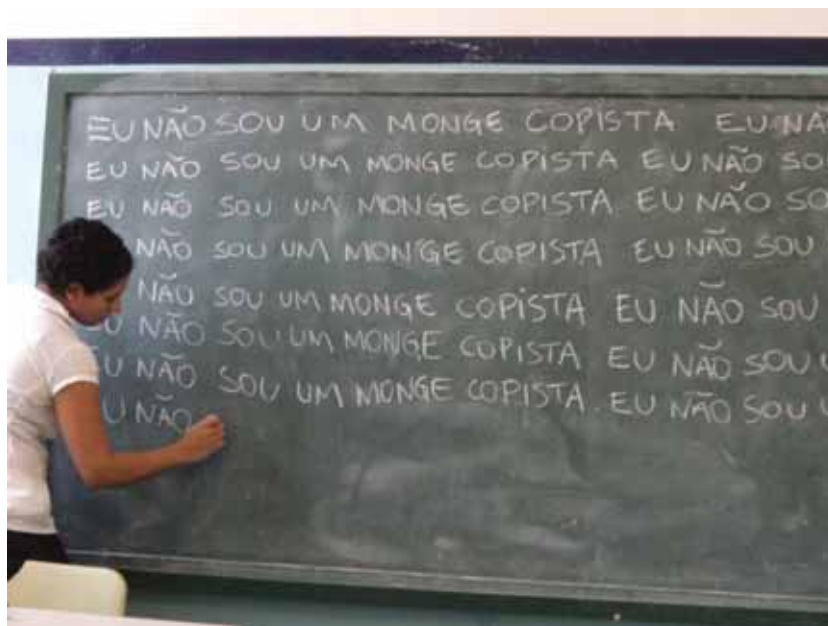 EU NÃO SOU UM MONGE COPISTA EU NÃ
EU NÃO SOU UM MONGE COPISTA EU NÃO SO
EU NÃO SOU UM MONGE COPISTA. EU NÃO SO
NÃO SOU UM MONGE COPISTA EU NÃO SOU
NÃO SOU UM MONGE COPISTA EU NÃO SOU
EU NÃO SOU UM MONGE COPISTA EU NÃO SOU U
EU NÃO SOU UM MONGE COPISTA. EU NÃO SOU U
U NÃO